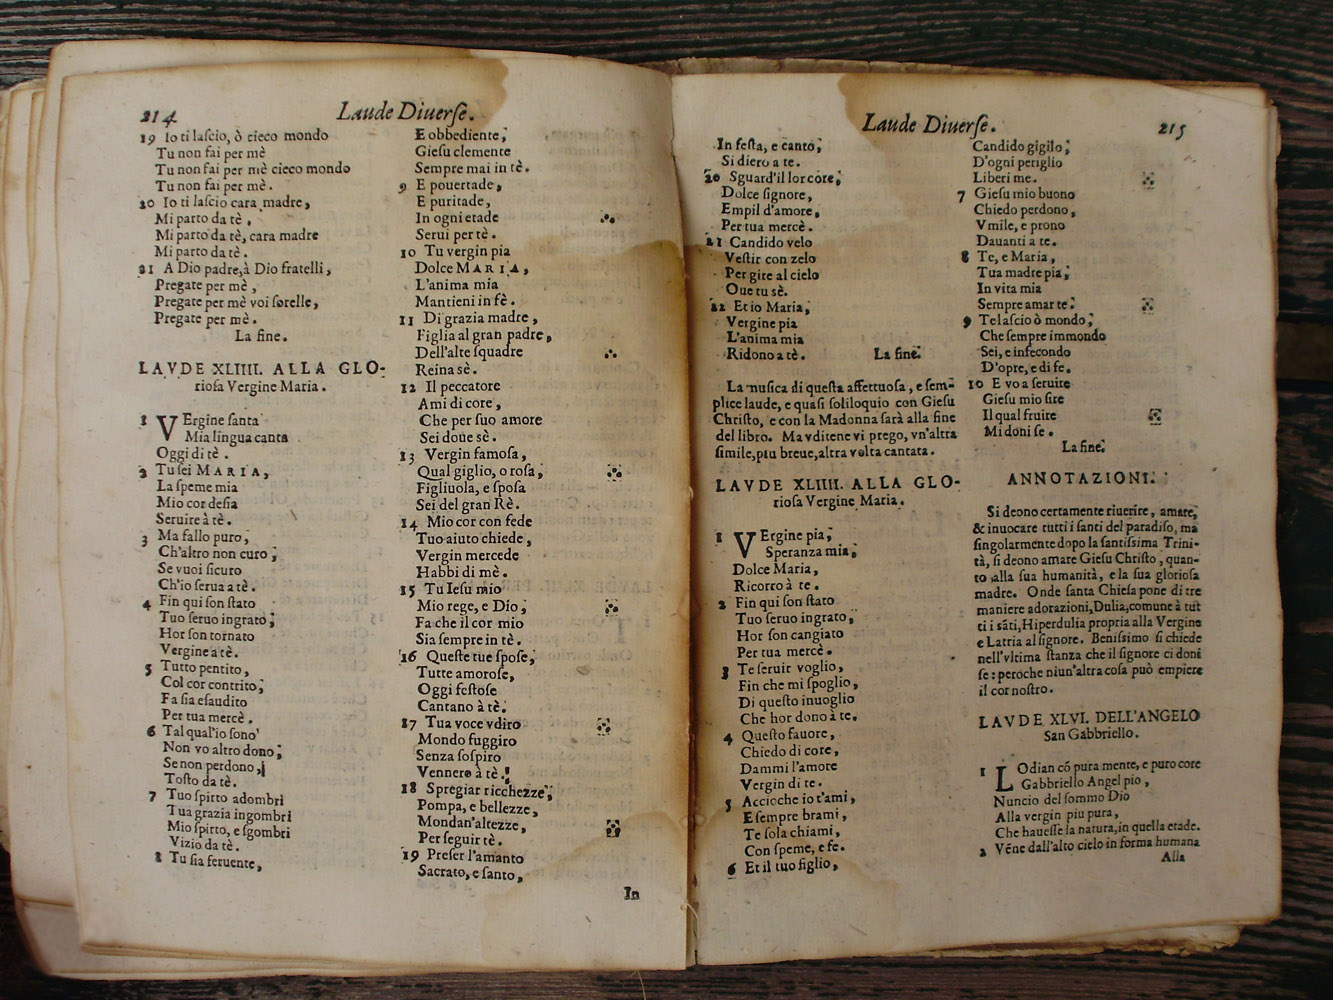 214
Laude Diuerse.
19 Io ti lascio, ò cieco mondo
Tu non fai per mè
Tu non fai per mè cieco mondo
Tu non fai per mè.
20 Io ti lascio cara madre,
Mi parto da tè,
Mi parto da tè, cara madre
Mi parto da tè.
21 A Dio padre,à Dio fratelli,
Pregate per mè,
Pregate per mè voi sorelle,
Pregate per mè.
La fine.
LAVDE XLIIII. ALLA GLO-
riosa Vergine Maria.
1 VErgine santa
Mia lingua canta
Oggi di tè.
2 Tu sei MARIA,
La speme mia
Mio cor desia
Seruire à tè.
3 Ma fallo puro,
Ch'altro non curo;
Se vuoi sicuro
Ch'io serua a tè.
4 Fin qui son stato
Tuo seruo ingrato;
Hor son tornato
Vergine a tè.
5 Tutto pentito,
Col cor contrito;
Fa sia esaudito
Per tua mercè.
6 Tal qual'io sono
Non vo altro dono;
Se non perdono,
Tosto da tè.
7 Tuo spirto adombri
Tua grazia ingombri
Mio spirto, e sgombri
Vizio da tè.
8 Tu sia feruente,
E obbediente;
Giesu clemente
Sempre mai in tè.
9 E pouertade,
E puritade,
In ogni etade
Serui per tè.
10 Tu vergin pia
Dolce MARIA,
L'anima mia
Mantieni in fè.
11 Di grazia madre,
Figlia al gran padre,
Dell'alte squadre
Reina sè.
12 Il peccatore
Ami di core,
Che per suo amore
Sei doue sè.
13 Vergin famosa,
Qual giglio, o rosa,
Figliuola, e sposa
Sei del gran Rè.
14 Mio cor con fede
Tuo aiuto chiede,
Vergin mercede
Habbi di mè.
15 Tu Iesu mio
Mio rege, e Dio;
Fa che il cor mio
Sia sempre in tè.
16 Queste tue spose,
Tutte amorose,
Oggi festose
Cantano à tè.
17 Tua voce vdiro
Mondo fuggiro
Senza sospiro
Vennero à tè.
18 Spregiar ricchezze,
Pompa, e bellezze,
Mondan'altezze,
Per seguir tè.
19 Preser l'amanto
Sacrato, e santo,
In
Laude Diuerse.
215
In festa, e canto;
Si diero a te.
20 Sguard'il lor core;
Dolce signore,
Empil d'amore,
Per tua mercè.
21 Candido velo
Vestir con zelo
Per gire al cielo
Oue tu sè.
22 Et io Maria;
Vergine pia
L'anima mia
Ridono a tè.
La fine.
La musica di questa affettuosa, e sem-
plice laude, e quasi soliloquio con Giesu
Christo, e con la Madonna sarà alla fine
del libro. Ma vditene vi prego, vn'altra
simile,piu breue,altra volta cantata.
LAVDE XLIIII. ALLA GLO-
riosa Vergine Maria.
1 VErgine pia;
Speranza mia;
Dolce Maria,
Ricorro à te.
2 Fin qui son stato
Tuo seruo ingrato,
Hor son cangiato
Per tua mercè.
3 Te seruir voglio,
Fin che mi spoglio,
Di questo inuoglio
Che hor dono à te.
4 Questo fauore,
Chiedo di core,
Dammi l'amore
Vergin di te.
5 Accioche io t'ami,
E sempre brami,
Te sola chiami,
Con speme, e fe.
6 Et il tuo figlio,
Candido gigilo;
D'ogni periglio
Liberi me.
7 Giesu mio buono
Chiedo perdono,
Vmile, e prono
Dauanti a te.
8 Te, e Maria,
Tua madre pia;
In vita mia
Sempre amar te.
9 Te lascio ò mondo;
Che sempre immondo
Sei, e infecondo
D'opre, e di fe.
10 E vo a seruire
Giesu mio sire
Il qual fruire
Mi doni se.
La fine.
ANNOTAZIONI.
Si deono certamente riuerire, amare,
& inuocare tutti i santi del paradiso, ma
singolarmente dopo la santissima Trini-
tà, si deono amare Giesu Christo, quan-
to alla sua humanità, e la sua gloriosa
madre. Onde santa Chiesa pone di tre
maniere adorazioni,Dulia,comune à tut
ti i sāti, Hiperdulia propria alla Vergine
e Latria al signore. Benissimo si chiede
nell'vltima stanza che il signore ci doni
se : peroche niun'altra cosa può empiere
il cor nostro.
LAVDE XLVI. DELL'ANGELO
San Gabbriello.
1 LOdian cō pura mente, e puro core
Gabbriello Angel pio,
Nuncio del sommo Dio
Alla vergin piu pura,
Che hauesse la natura,in quella etade.
2 Vēne dall'alto cielo in forma humana
Alla